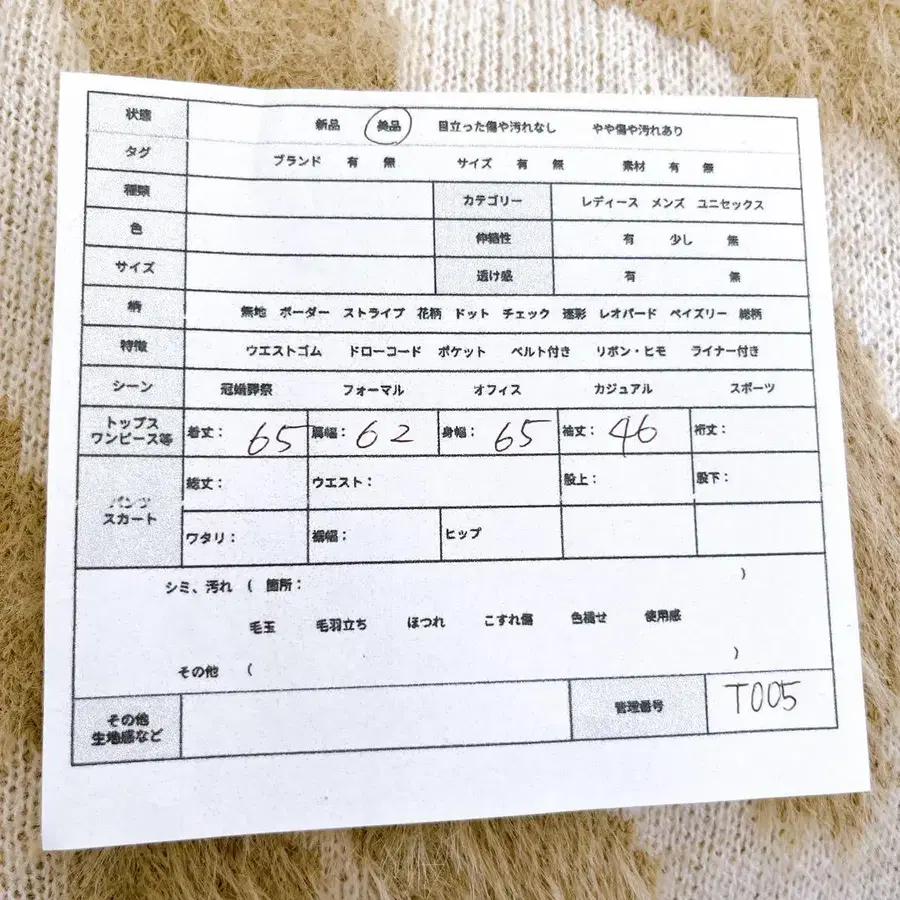 状態 新品 美品 目立った傷や汚れなし やや傷や汚れあり
タグ ブランド 有 無 サイズ 有 無 素材 有 無
種類 カテゴリー レディース メンズ ユニセックス
色 伸縮性 有 少し 無
サイズ 透け感 有 無
柄 無地 ボーダー ストライプ 花柄 ドット チェック 迷彩 レオパード ペイズリー 総柄
特徴 ウエストゴム ドローコード ポケット ベルト付き リボン・ヒモ ライナー付き
シーン 冠婚葬祭 フォーマル オフィス カジュアル スポーツ
トップス
ワンピース等 着丈: 65 肩幅: 62 身幅: 65 袖丈: 46 裄丈:
パンツ
スカート 総丈: ウエスト: 股上: 股下:
ワタリ: 裾幅: ヒップ
シミ、汚れ ( 箇所: )
毛玉 毛羽立ち ほつれ こすれ傷 色褪せ 使用感
その他 ( )
その他
生地感など 管理番号 T005